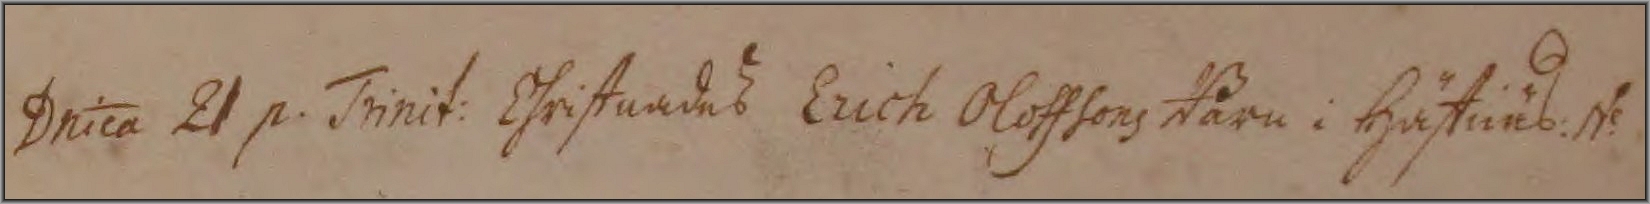 Dnica 21 p. Trinit: Christnades Erich Oloffsons Barn i Hästnäs: N: